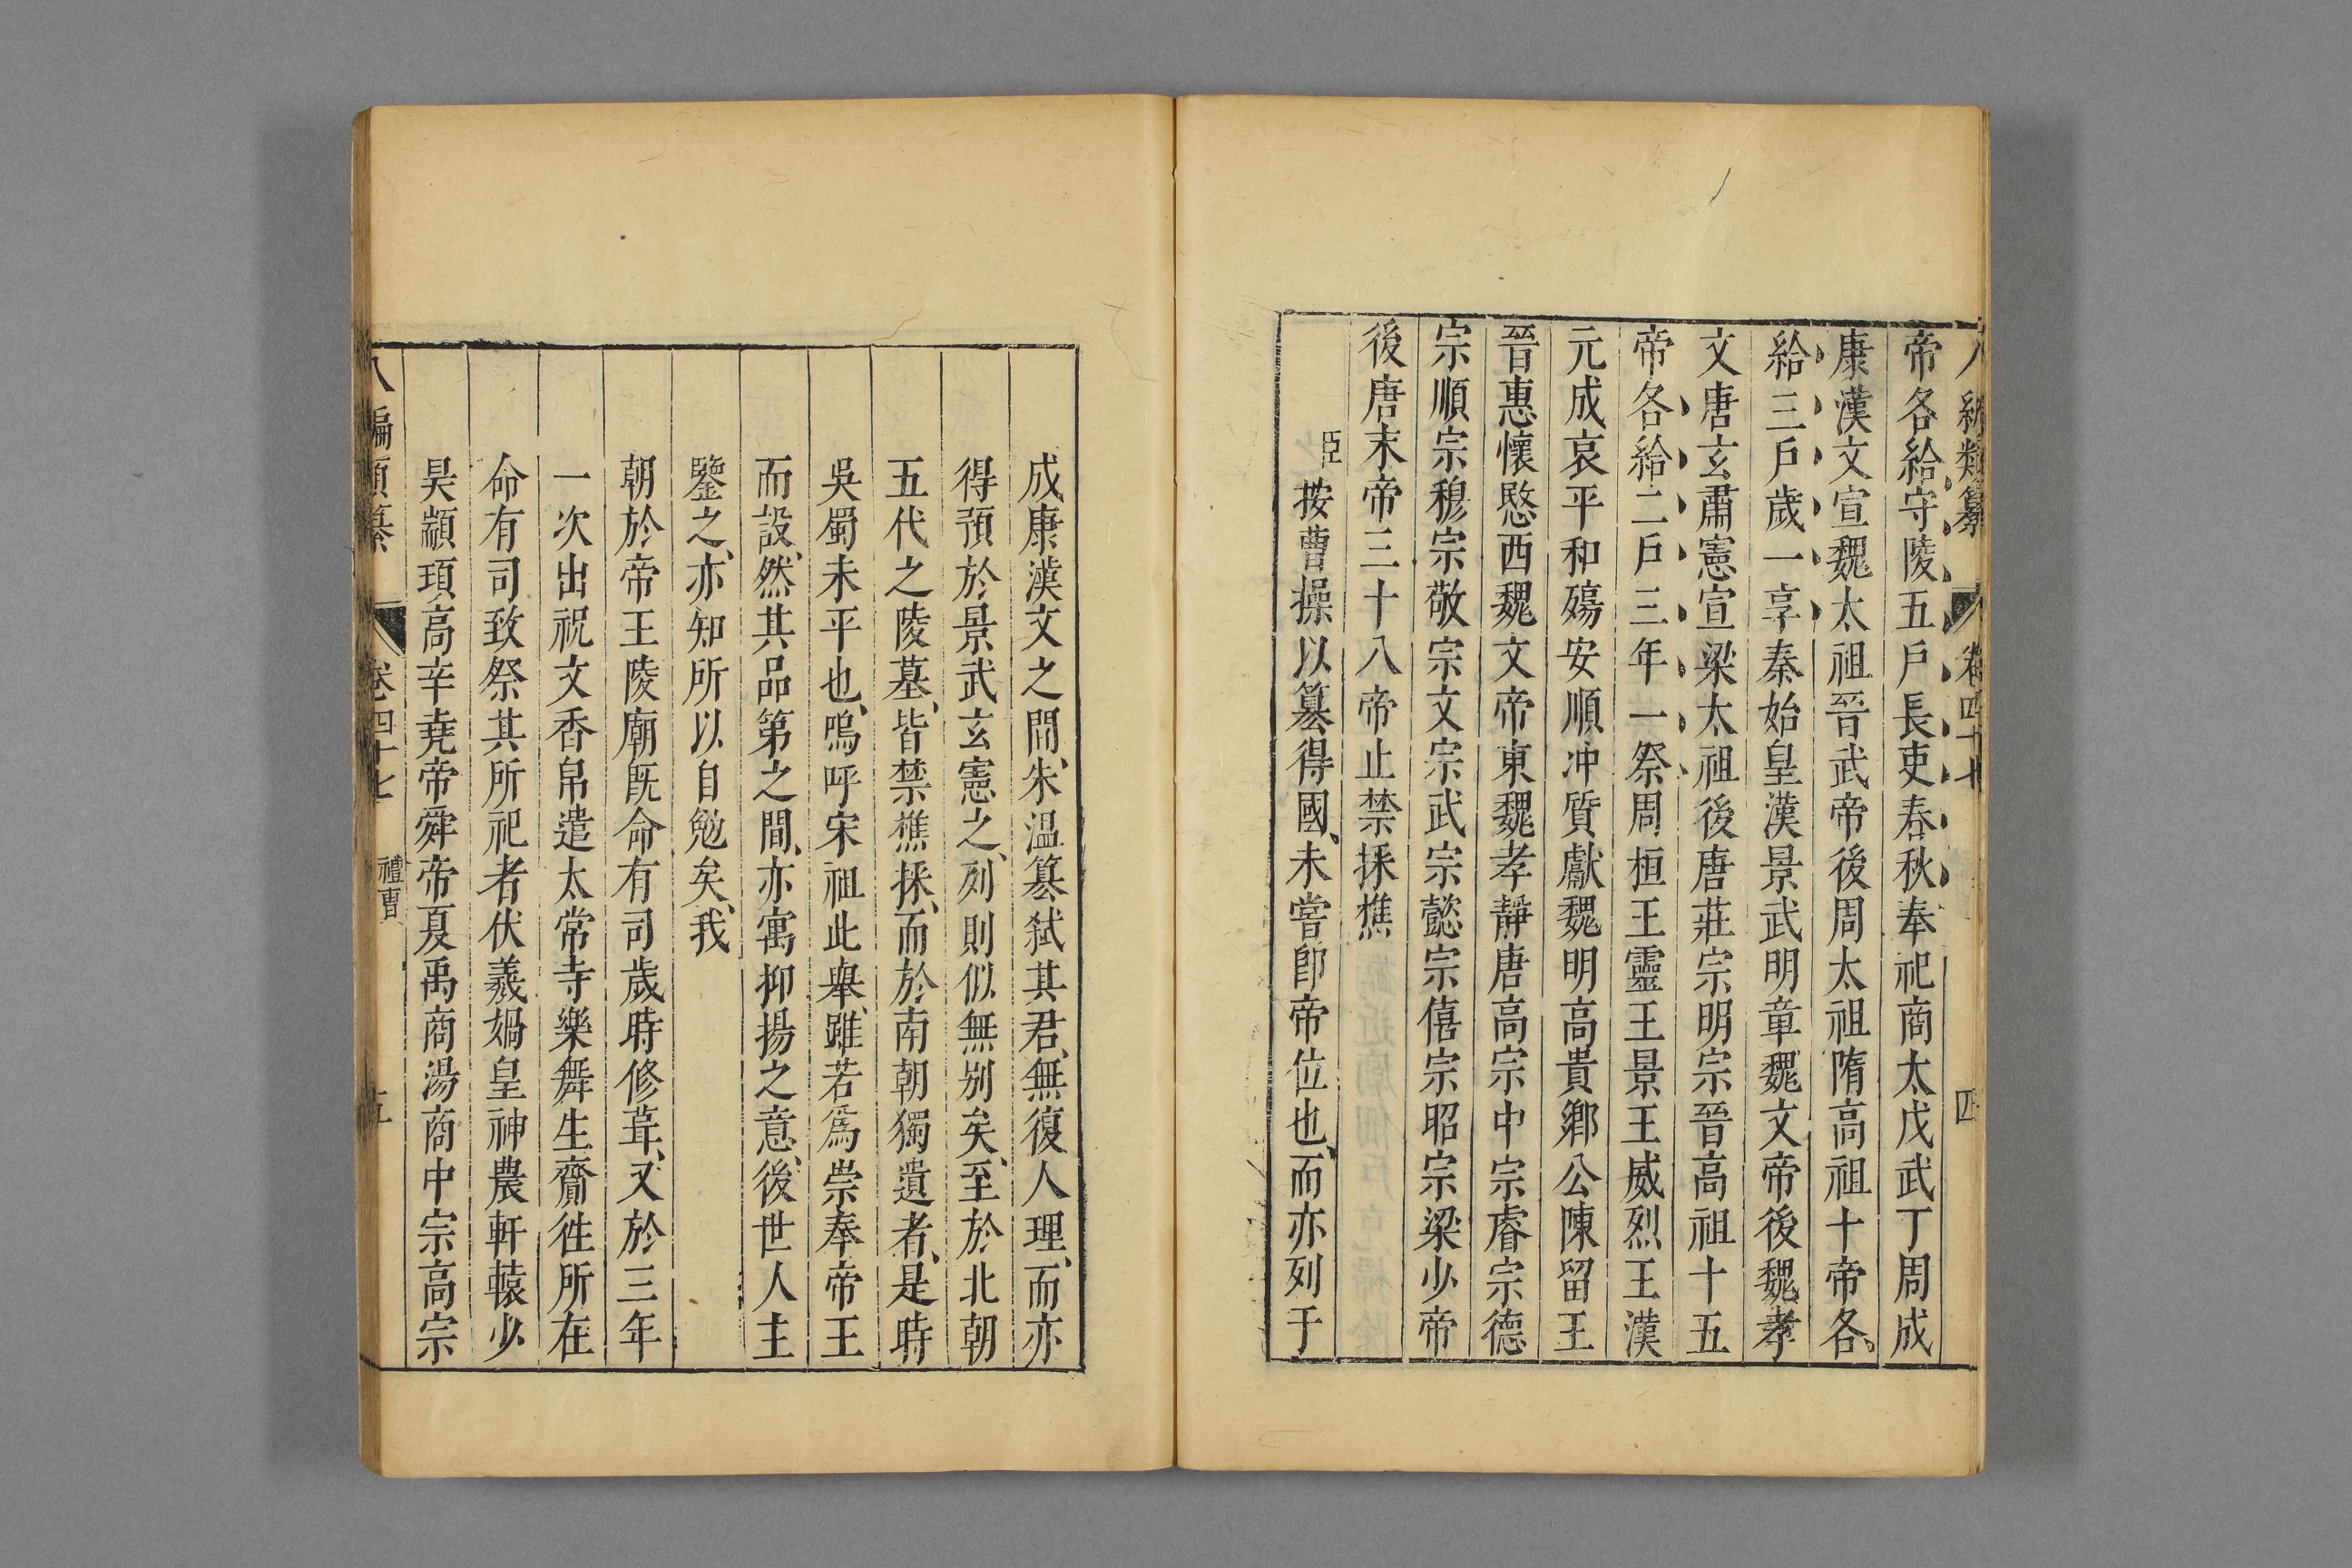 八編類纂 卷四十七 四
帝各給守陵五戶長吏春秋奉祀商太戊武丁周成
康漢文宣魏太祖晉武帝後周太祖隋高祖十帝各
給三戶歲一享秦始皇漢景武明章魏文帝後魏孝
文唐玄肅憲宣梁太祖後唐莊宗明宗晉高祖十五
帝各給二戶三年一祭周桓王靈王景王威烈王漢
元成哀平和殤安順冲質獻魏明高貴鄉公陳留王
晉惠懷愍西魏文帝東魏孝靜唐高宗中宗睿宗德
宗順宗穆宗敬宗文宗武宗懿宗僖宗昭宗梁少帝
後唐末帝三十八帝止禁採樵
臣按曹操以簒得國、未嘗卽帝位也、而亦列于
成康漢文之間、朱温簒弑其君、無復人理、而亦
得預於景武玄憲之、列則似無别矣、至於北朝
五代之陵墓、皆禁樵採、而於南朝獨遺者、是時
吳蜀未平也、嗚呼宋祖此舉、雖若爲崇奉帝王
而設、然其品第之間、亦寓抑揚之意、後世人主
鑒之、亦知所以自勉矣、我
朝於帝王陵廟旣命有司歲時修葺、又於三年
一次出祝文香帛遣太常寺樂舞生齎徃所在
命有司致祭其所祀者伏羲媧皇神農軒轅少
昊顓頊高辛堯帝舜帝夏禹商湯商中宗高宗
八編類纂 卷四十七 禮曹 五